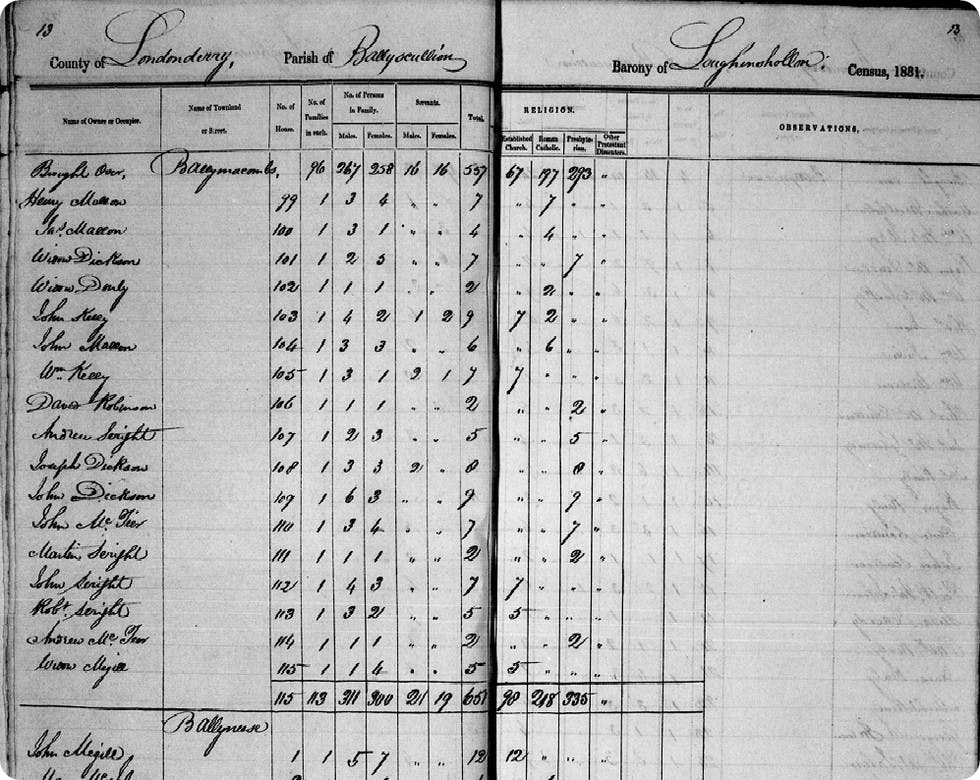 13 13
County of Londonderry, Parish of Ballyscullion Barony of Loughinshollon: Census, 1831.
Name of Owner or Occupier. Name of Townland or Street. No. of House. No. of Families in each. No. of Persons in Family. Males. Females. Servants. Males. Females. Total. RELIGION. Established Church. Roman Catholic. Presbyterian. Other Protestant Dissenters. OBSERVATIONS.
Brought Over, Ballymacombs, 96 267 258 16 16 557 67 197 293 "
Henry Mallon 99 1 3 4 " " 7 " 7 " "
Jas. Mallon 100 1 3 1 " " 4 " 4 " "
Widow Dickson 101 1 2 5 " " 7 " " 7 "
Widow Donly 102 1 1 1 " " 2 " 2 " "
John Kelly 103 1 4 2 1 2 9 7 2 " "
John Mallon 104 1 3 3 " " 6 " 6 " "
Wm. Kelly 105 1 3 1 2 1 7 7 " " "
David Robinson 106 1 1 1 " " 2 " " 2 "
Andrew Seright 107 1 2 3 " " 5 " " 5 "
Joseph Dickson 108 1 3 3 2 " 8 " " 8 "
John Dickson 109 1 6 3 " " 9 " " 9 "
John Mc. Teer 110 1 3 4 " " 7 " " 7 "
Martin Seright 111 1 1 1 " " 2 " " 2 "
John Seright 112 1 4 3 " " 7 7 " " "
Robt. Seright 113 1 3 2 " " 5 5 " " "
Andrew Mc. Teer 114 1 1 1 " " 2 " " 2 "
Widow Megill 115 1 1 4 " " 5 5 " " "
115 113 311 300 21 19 651 98 218 335 "
Ballynease
John Megill 1 1 5 7 " " 12 12 " " "